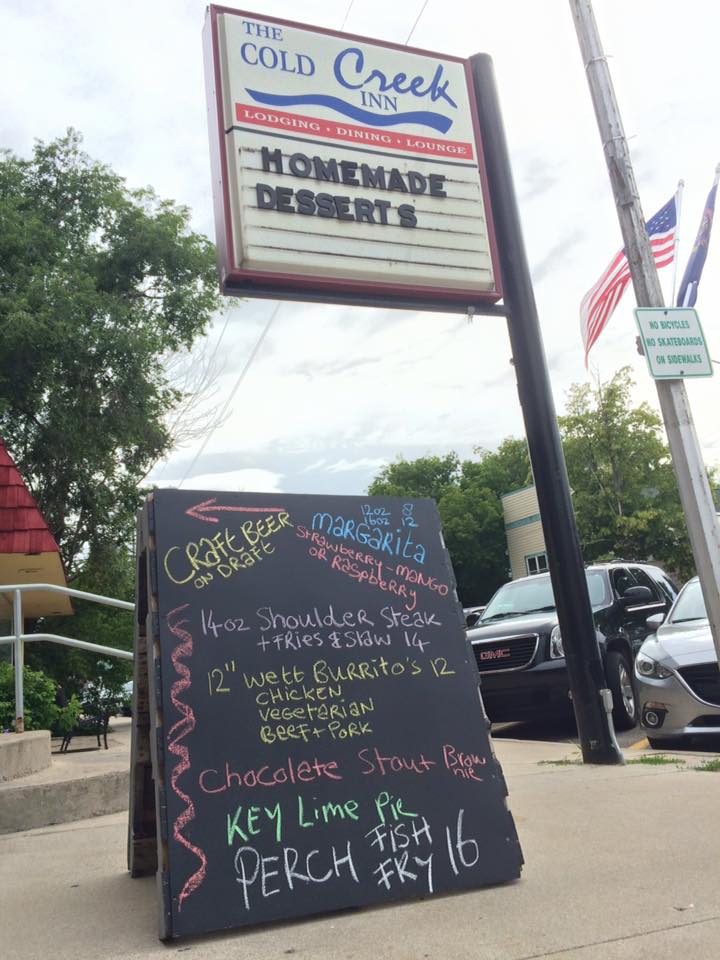 THE
COLD Creek
INN
LODGING • DINING • LOUNGE
HOMEMADE
DESSERTS
NO BICYCLES
NO SKATEBOARDS
ON SIDEWALKS
GMC
CRAFT BEER
ON DRAFT
12oz 8
16oz 12
MARGARITA
STRAWBERRY - MANGO
OR RASPBERRY
14oz Shoulder Steak
+ FRIES & SLAW 14
12" WETT BURRITO'S 12
CHICKEN
VEGETARIAN
BEEF + PORK
Chocolate Stout Brow
nie
KEY Lime Pie
PERCH FISH
FRY 16